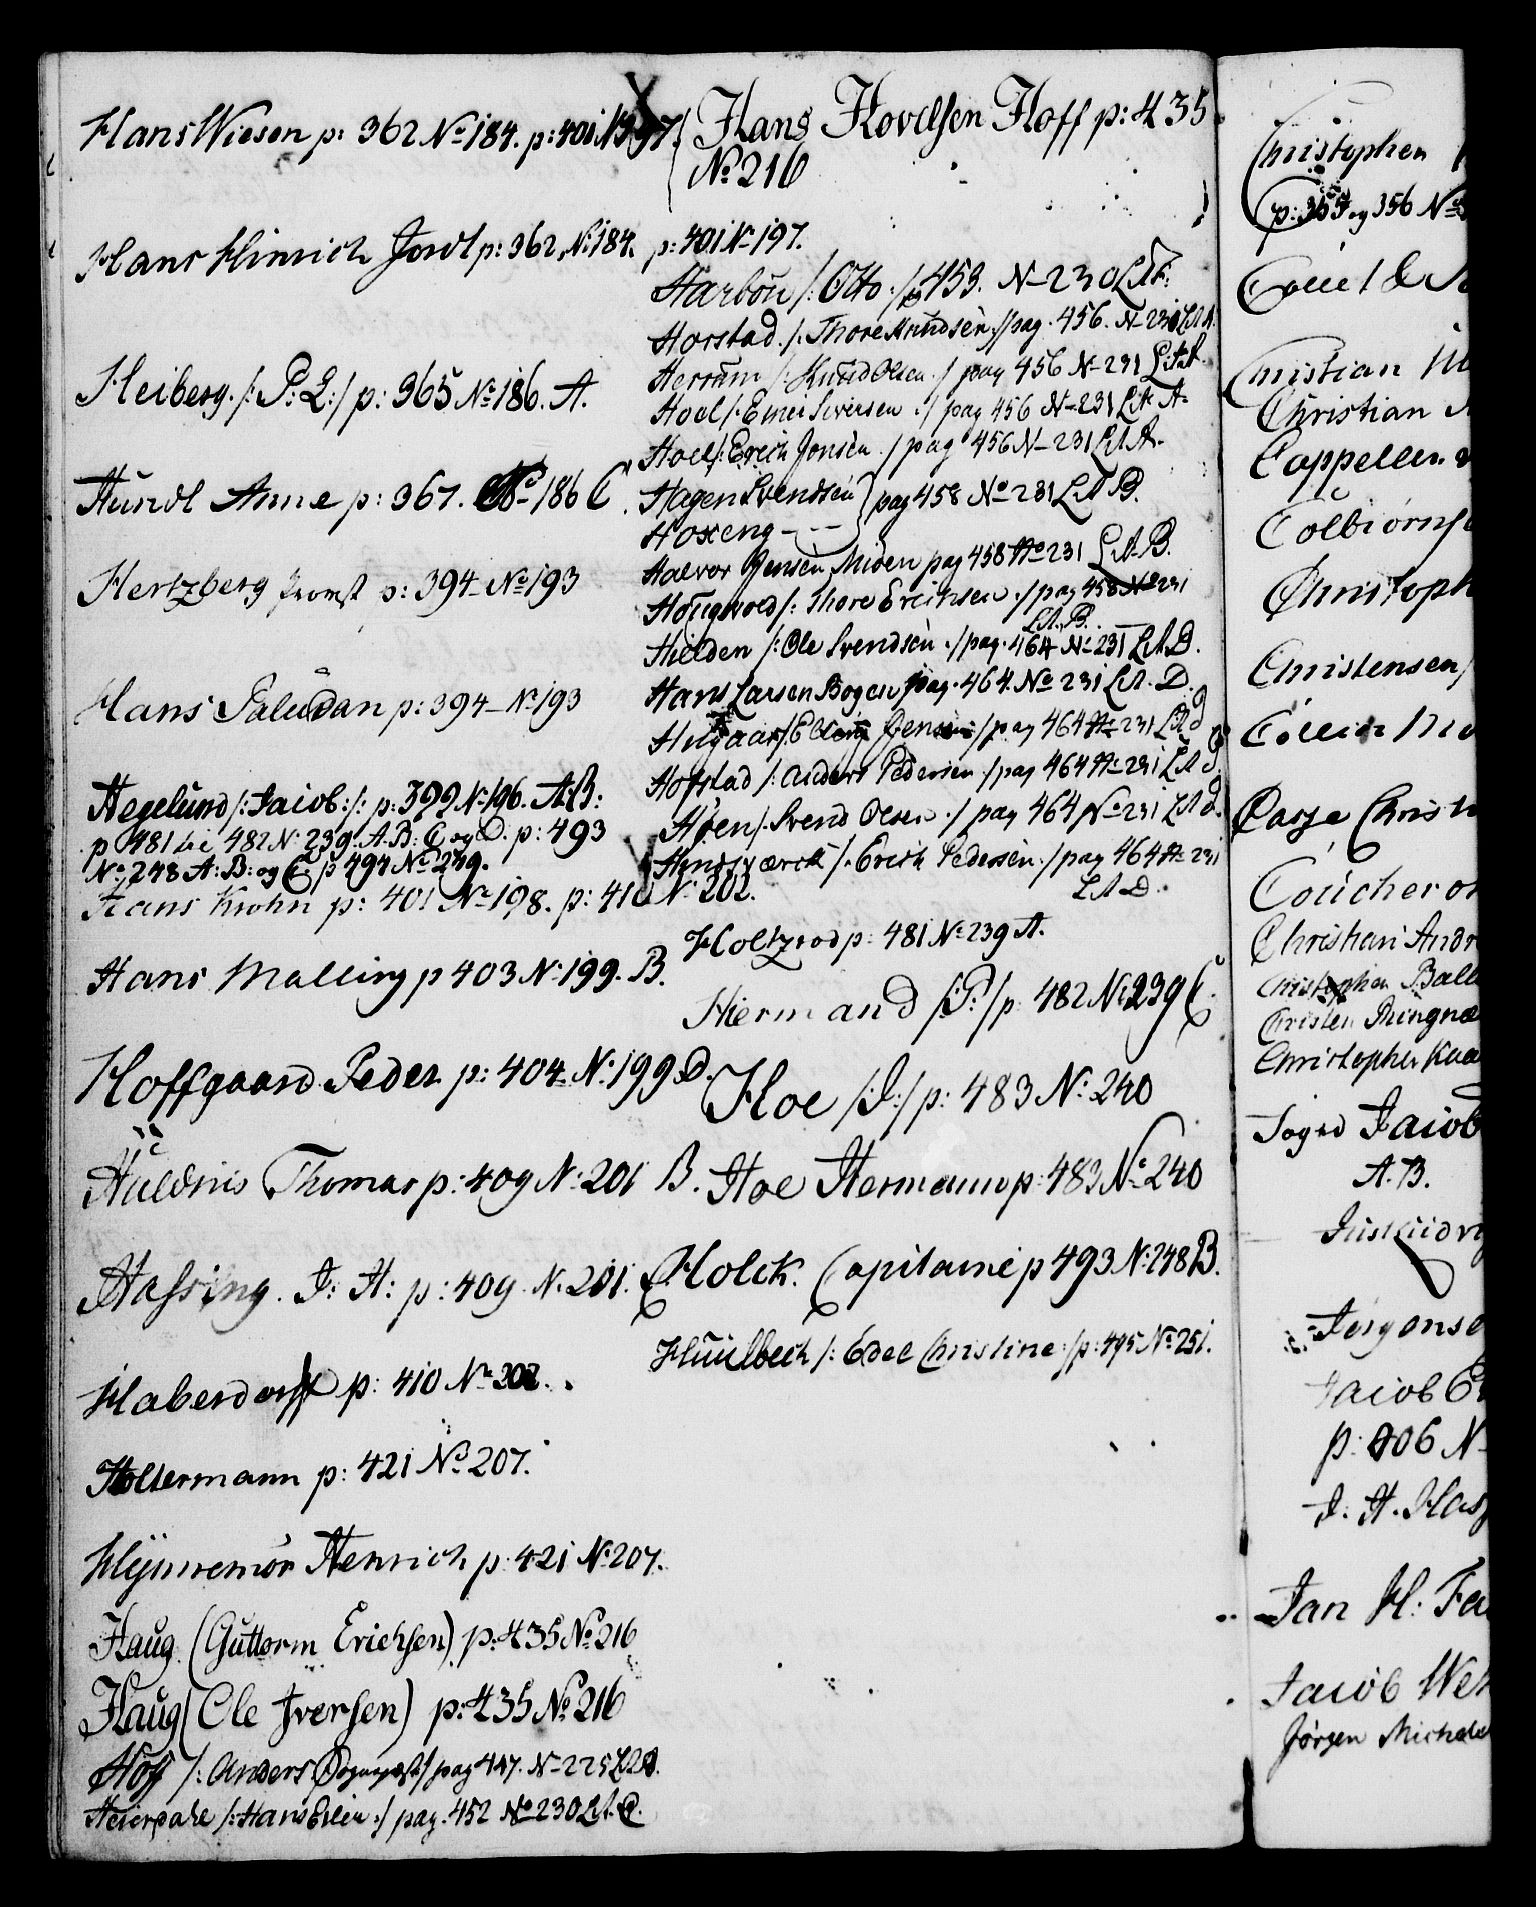 Hans Wiesen p: 362 No 184. p: 401. 197.
Hans Hinrich Jordt p: 362, No: 184. p: 401 No 197.
Heiberg. /: P: L: / p: 365 No: 186. A.
Hundt Anne p: 367. No 186 C.
Hertzberg Provst p: 394 No 193
Hans Paludan p: 394 No 193
Hegelund /: Jacob: /: p: 399 No 196. A: B:
p 481 til 482 No 239. A. B: C og D. p: 493
No 248 A: B: og C: p 494 No 249.
Hans Krohn p: 401 No 198. p: 410 No: 202.
Hans Malling p 403 No: 199. B.
Hoffgaard Peder p: 404 No: 199 D.
Huldnis Thomas p: 409 No: 201 B.
Hassing. J: H: p: 409. No. 201. C
Haberdorff p: 410 No 202.
Holtermann p: 421 No 207.
Henrich p: 421 No: 207.
Haug (Guttorm Erichsen) p: 435 No 216
Haug (Ole Iversen) p: 435 No 216
Hoff /: Anders / pag 447. No 225
/: Hans / pag. 452 No 230 Lit. C.
Hans Hovelsen Hoff p: 435
No 216
Harbou /: Otto: / p 453. No 230 Lit F:
Horstad. /: Thore Knudsen: / pag. 456. No 230 Lit A.
Herrum /: Knud Olsen: / pag 456 No 231 Lit A
Hoel /: Einer Siversen: / pag 456 No 231 Lit A.
Hoel /: Erich Jonsen: / pag 456 No 231 Lit A.
Hagen Svendsen } pag 458 No 231 Lit B.
Hoxeng
Halvor Jensen Moen pag 458 No 231 Lit. B.
/: Thore Erichsen: / pag 458 No 231
Lit. B.
Hielden /: Ole Svendsen: / pag. 464 No 231 Lit D.
Hans Larsen Bogen pag. 464. No 231 Lit. D.
Jensen / pag 464 No 231 Lit d
Hofstad /: Anders Pedersen: / pag 464 No 231 Lit D.
Høen /: Svend Olsen: / pag 464 No 231 Lit d
/: Erich Pedersen: / pag 464 No 231
Lit D.
Holtzrod p: 481 No 239 A.
Hiermand /: P: / p 482 No 239 C.
Hoe /: J: / p: 483 No: 240
Hoe Hermann p: 483 No 240
Holck. Capitaine p 493 No: 248 B.
/: Edel Christine: / p: 495 No 251.
Christophen
p: 355 og 356 No
Christian
Christian
Cappelen
Colbiørns
Christoph
Christensen /
Collin
Carsje Christ
Coucheron
Christian Andr
Christopher Ball
Christen Ringnæ
Christopher Knu
Sogn Jacob
A. B.
Jørgens
Jacob
p: 406 No
J. H. Has
Jan H: Fa
Jacob
Jørgen Michel